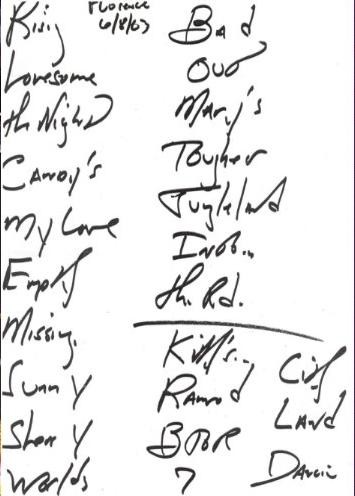 Florence
6/8/03
Rising
Lonesome
the Night
Candy's
My Love
Empty
Missing
Sunny
Sherry
Worlds
Bad
Out
Mary's
Tougher
Jungleland
Into
the Rd.
Kitty's
Ramrod
BTOR
7
City
Land
Dancin